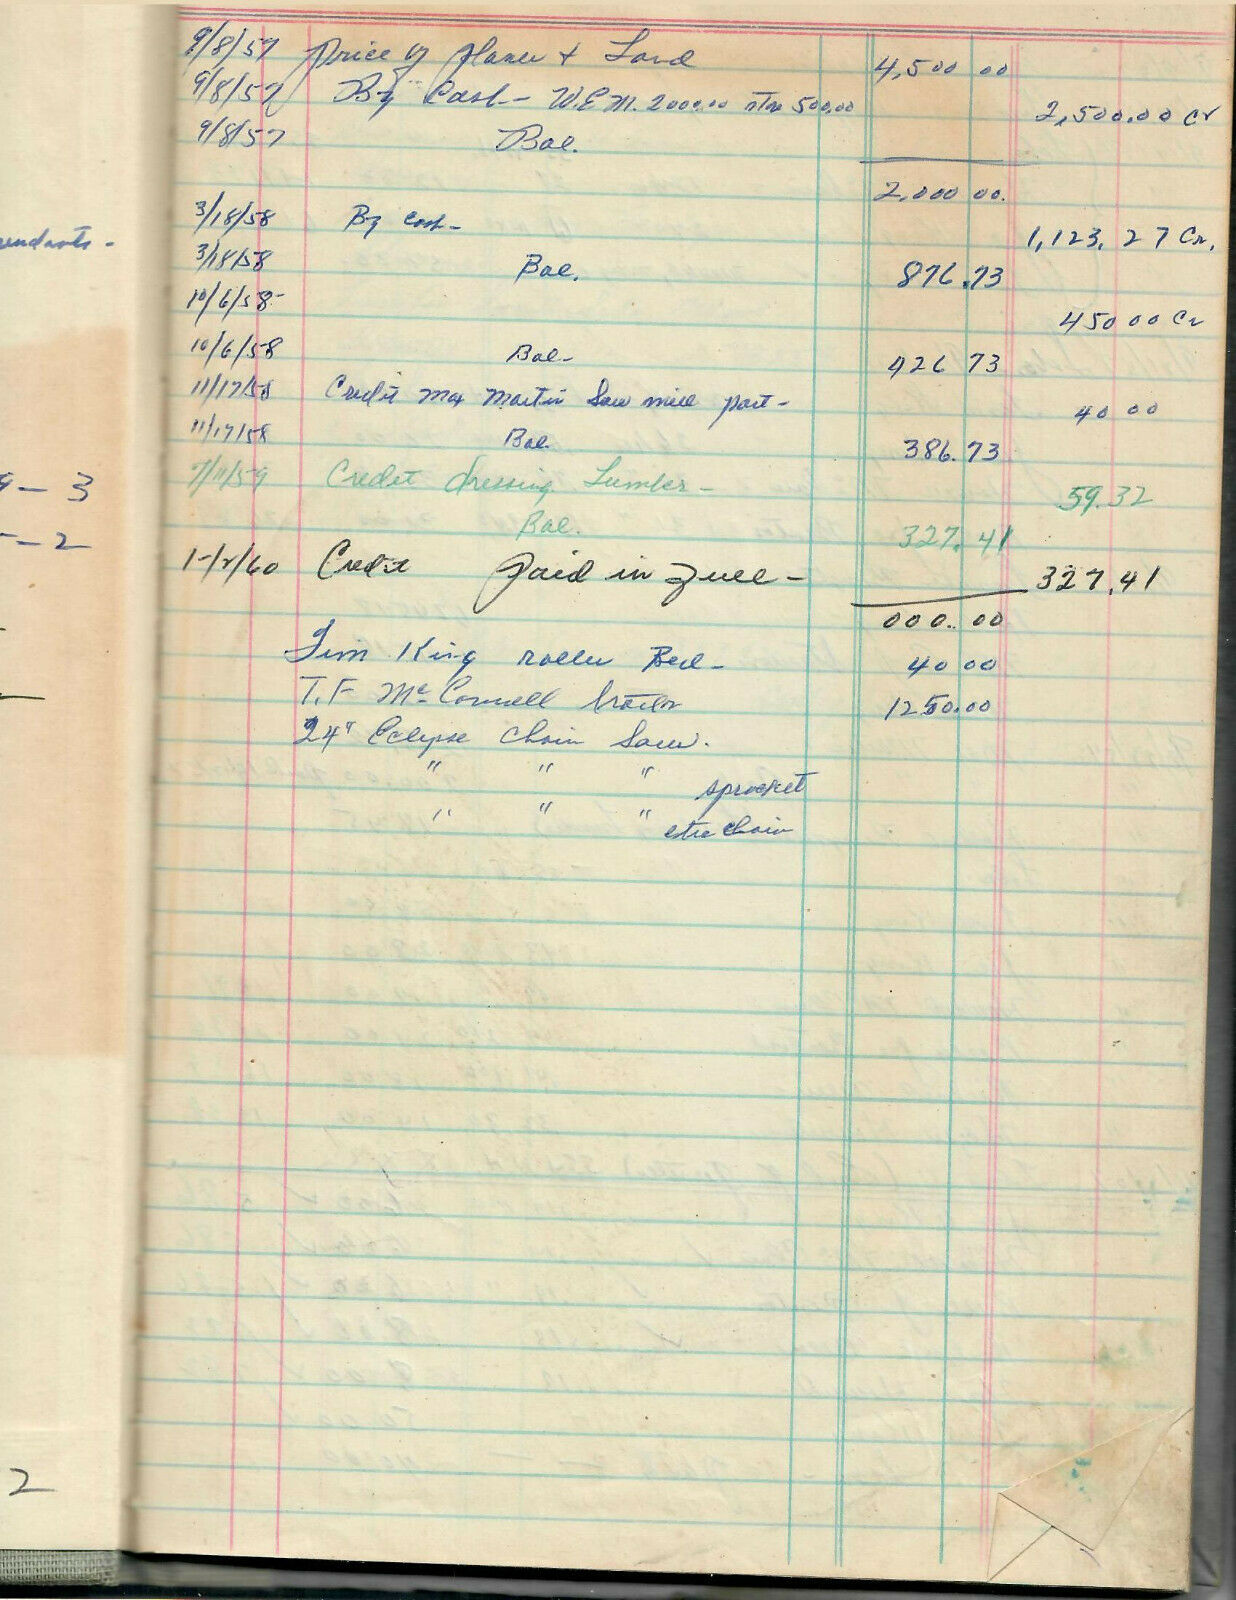 9/8/57 Price of planer + Land 4,500 00
9/8/57 By Cash - W.E.M. 2000.00 500.00 2,500.00 Cr
9/8/57 Bal.
2,000 00.
3/18/58 By cash - 1,123.27 Cr.
3/18/58 Bal. 876.73
10/6/58 450 00 Cr
10/6/58 Bal - 426 73
11/17/58 Credit Max Martin Saw mill part - 40 00
11/17/58 Bal. 386.73
7/11/59 Credit dressing Lumber - 59.32
Bal. 327.41
1-/2/60 Credit Paid in Full - 327.41
000.00
Jim King roller Bed - 40 00
T.F McConnell 1250.00
24" Eclipse Chain Saw.
" " " sprocket
" " " chain
- 3
- 2
2